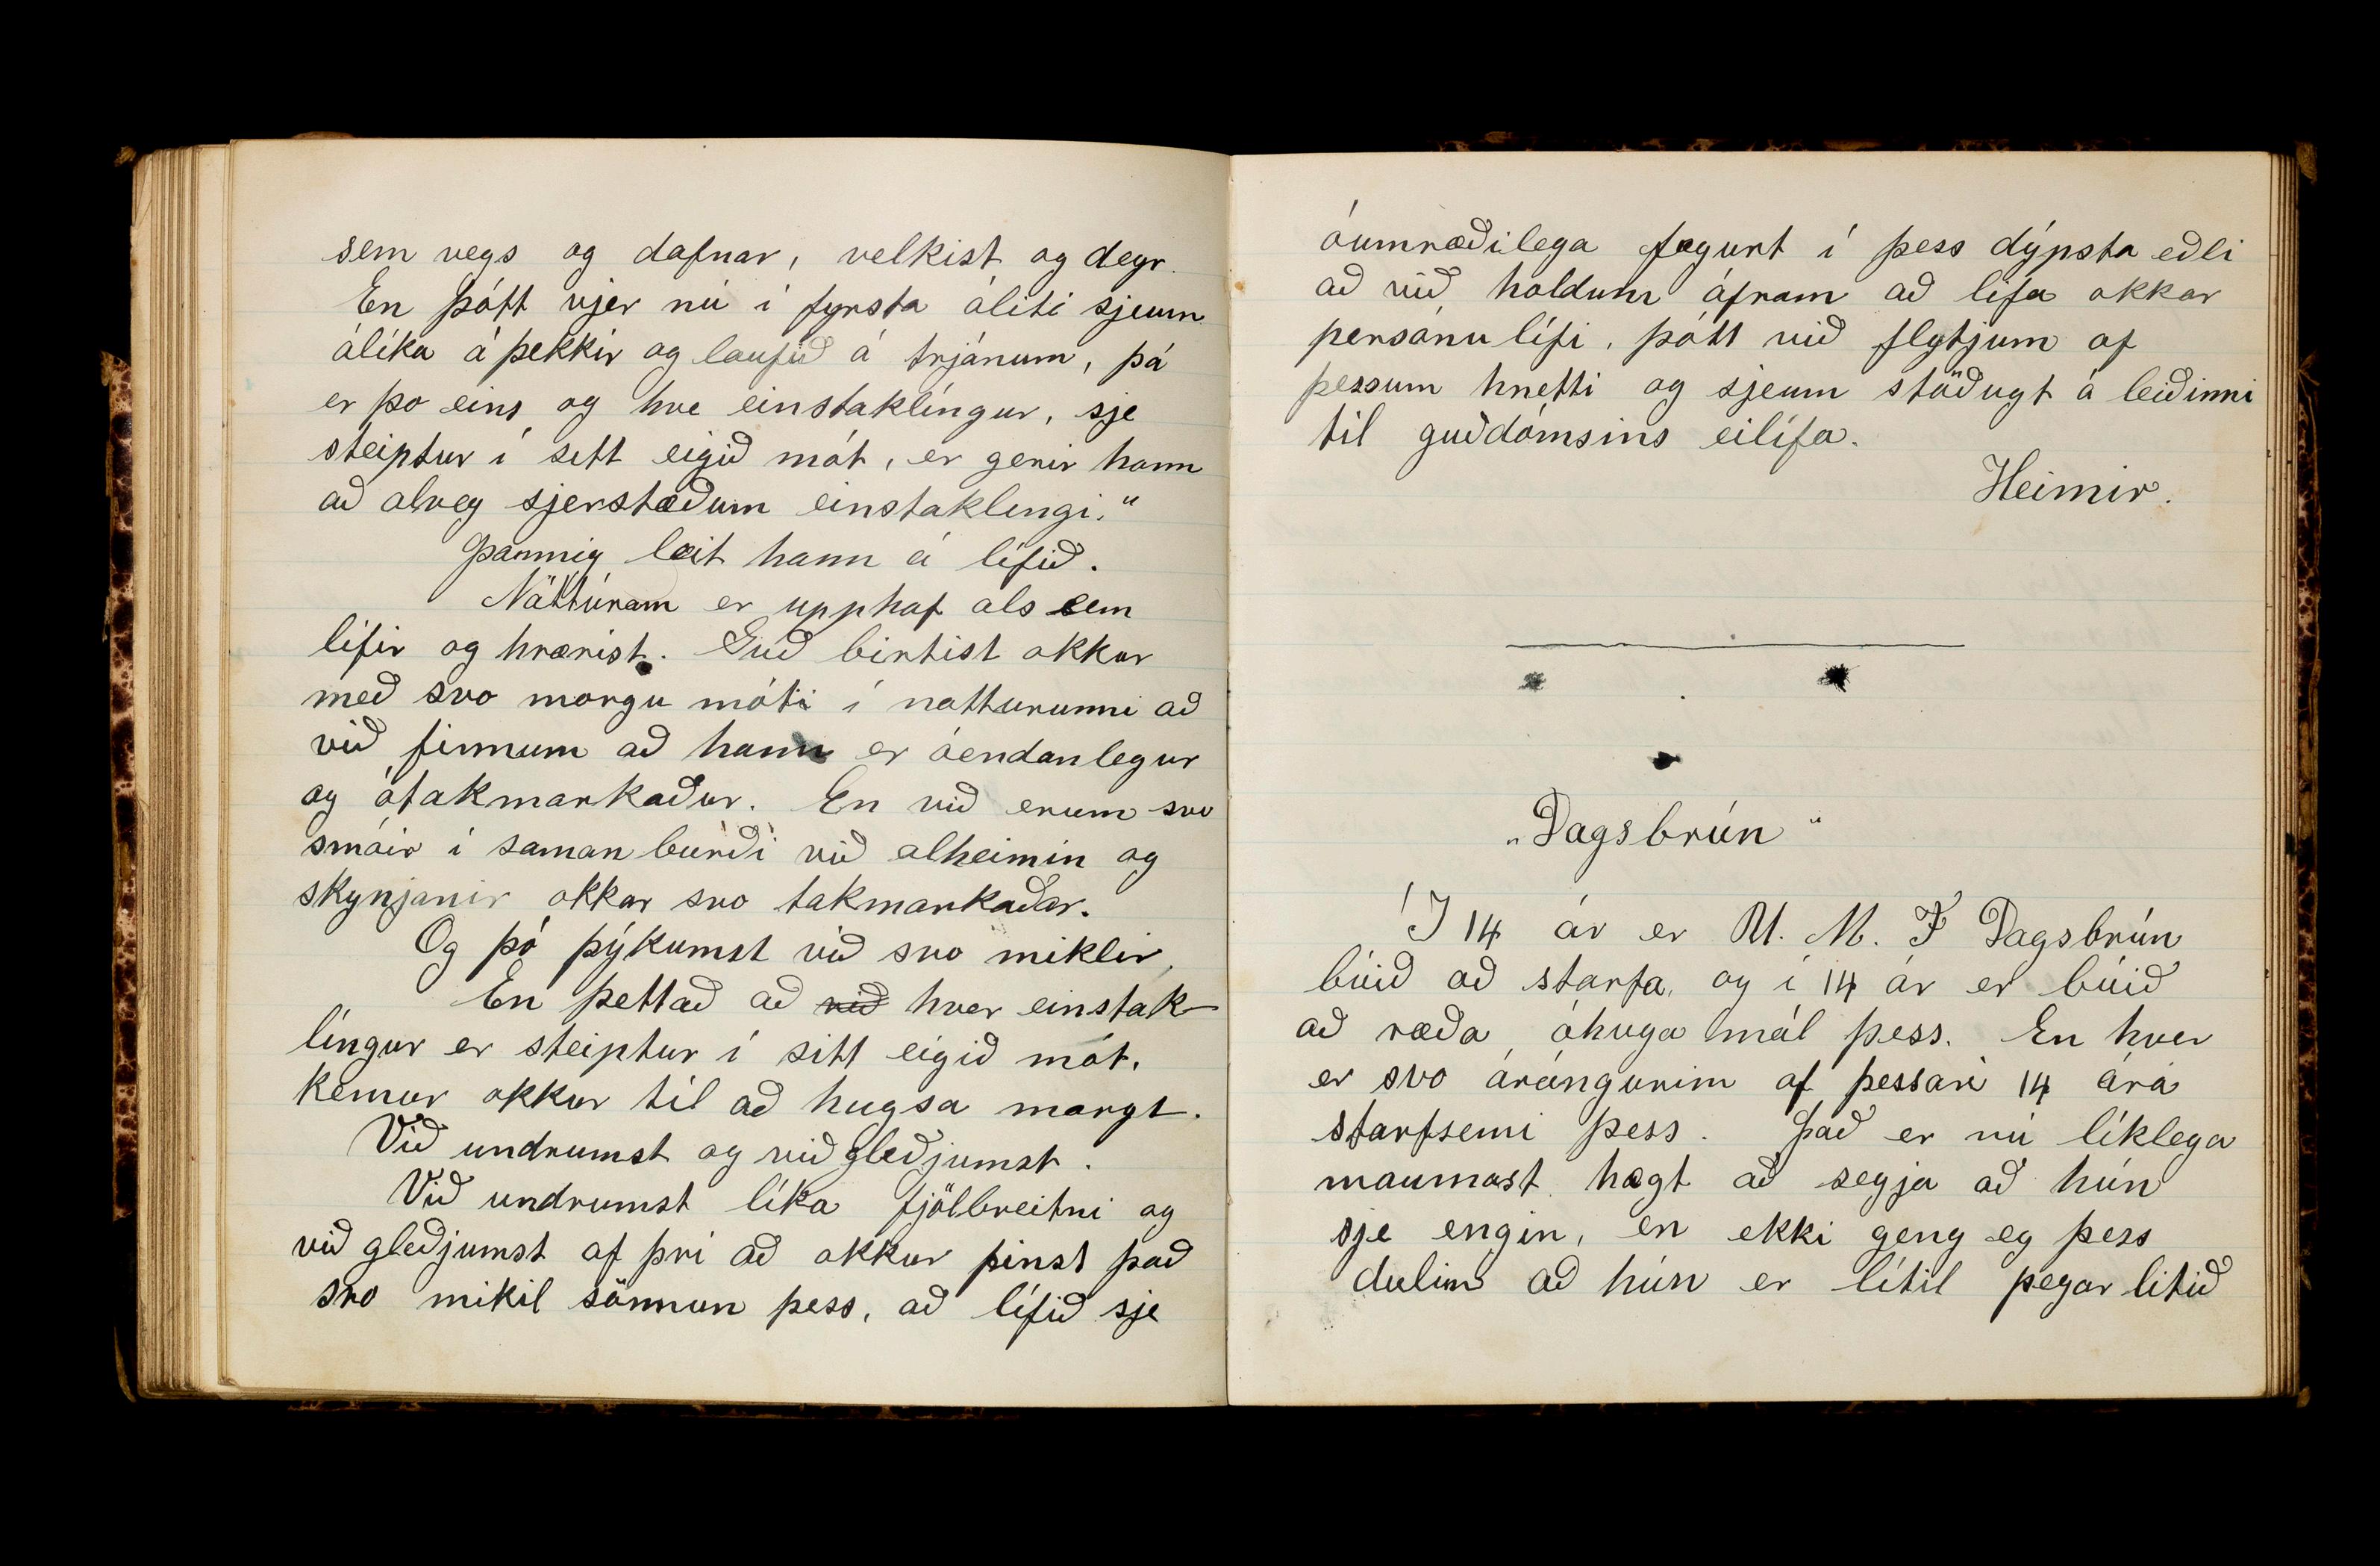 sem vegs og dafnar, velkist og deyr.
En þótt vjer nú í fyrsta áliti sjeum
álíka áþekkir og laufið á trjánum, þá
er þo eins og hve einstaklíngur, sje
steiptur í sitt eigið mót, er gerir hann
að alveg sjerstæðum einstaklingi."
Þannig leit hann á lífið.
Náttúran er upphaf als sem
lifir og hrærist. Guð birtist okkur
með svo morgu móti í natturunni að
við finnum að hann er óendanlegur
og ótakmarkaður. En við erum svo
smáir í samanburði við alheimin og
skynjanir okkar svo takmarkaðar.
Og þó þýkumst við svo miklir,
En þettað að við hver einstak-
língur er steiptur í sitt eigið mót,
kemur okkur til að hugsa margt.
Við undrumst og við gleðjumst.
Við undrumst líka fjölbreitni og
við gleðjumst af því að okkur þinst það
svo mikil sönnun þess, að lífið sje
óumræðilega fagurt í þess dýpsta eðli
að við holdum áfram að lifa okkar
persónulífi, þótt við flytjum af
þessum hnetti og sjeum stöðugt á leiðinni
til guðdómsins eilífa.
Heimir.
„Dagsbrún"
Í 14 ár er U. M. F Dagsbrún
búið að starfa, og í 14 ár er búið
að ræða áhuga mál þess. En hver
er svo árángurin af þessari 14 ára
starfsemi þess. Það er nú líklega
naumast hægt að segja að hún
sje engin, en ekki geng eg þess
dulin að hún er lítil þegar litið